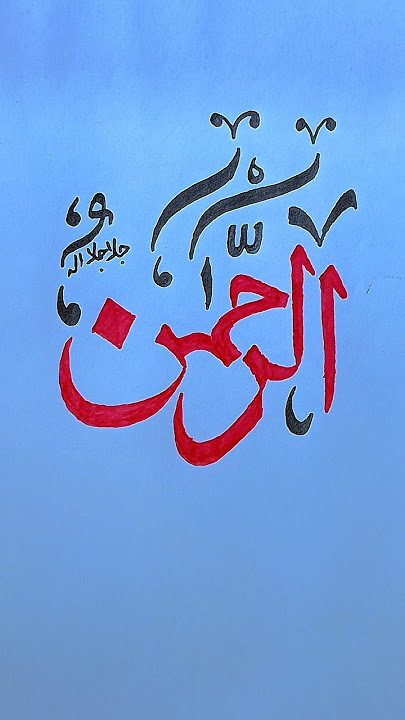 الرحمن
جلا جلا اله